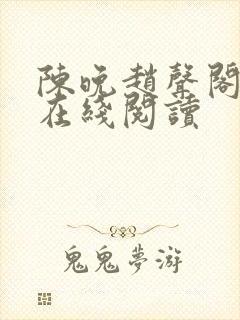 陳晚趙聲閣
在綫閱讀
鬼鬼夢游